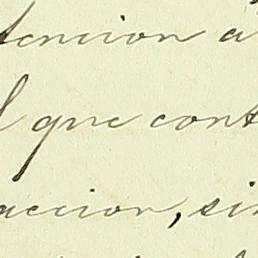 tencion a
l que cont
accion, sin